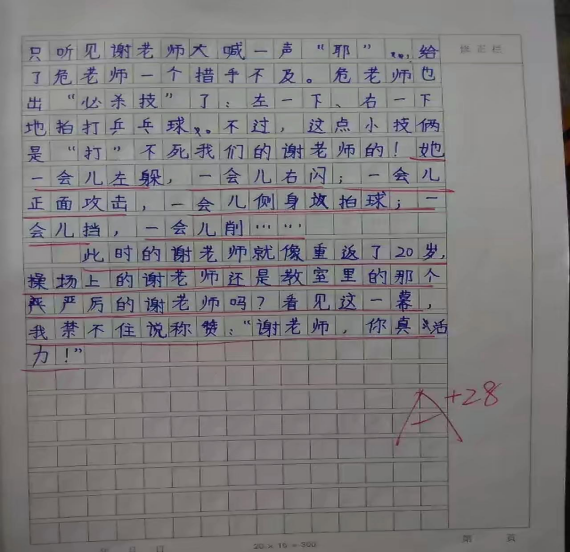 只听见谢老师大喊一声“耶”…,给
了危老师一个措手不及。危老师也
出“必杀技”了:左一下、右一下
地拍打乒乓球。不过,这点小技俩
是“打”不死我们的谢老师的!她
一会儿左躲,一会儿右闪;一会儿
正面攻击,一会儿侧身拍球;一
会儿挡,一会儿削……
此时的谢老师就像重返了20岁,
操场上的谢老师还是教室里的那个
严厉的谢老师吗?看见这一幕,
我禁不住说称赞:“谢老师,你真活
力!”
A+28
20×15=300
第 页